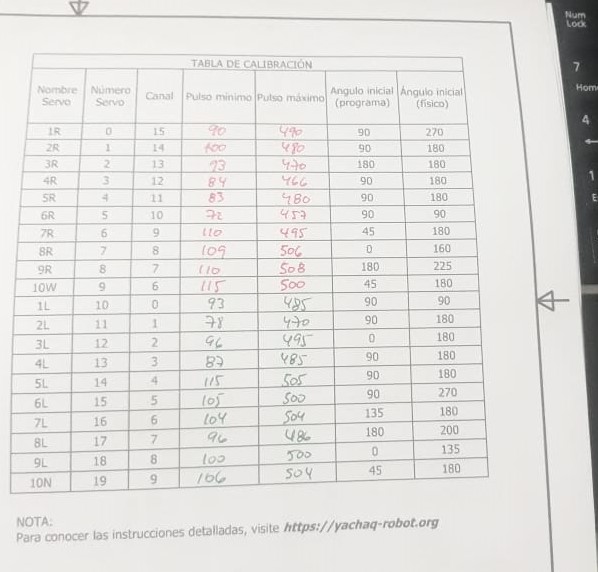 TABLA DE CALIBRACIÓN
Nombre Servo Número Servo Canal Pulso mínimo Pulso máximo Angulo inicial (programa) Ángulo inicial (físico)
1R 0 15 90 490 90 270
2R 1 14 100 480 90 180
3R 2 13 93 470 180 180
4R 3 12 84 466 90 180
5R 4 11 83 480 90 180
6R 5 10 72 457 90 90
7R 6 9 110 495 45 180
8R 7 8 109 506 0 160
9R 8 7 110 508 180 225
10W 9 6 115 500 45 180
1L 10 0 93 485 90 90
2L 11 1 78 470 90 180
3L 12 2 96 495 0 180
4L 13 3 87 485 90 180
5L 14 4 115 505 90 180
6L 15 5 105 500 90 270
7L 16 6 104 504 135 180
8L 17 7 96 486 180 200
9L 18 8 100 500 0 135
10N 19 9 106 504 45 180
NOTA:
Para conocer las instrucciones detalladas, visite https://yachaq-robot.org
Num
Lock
7
Hom
4
1
E